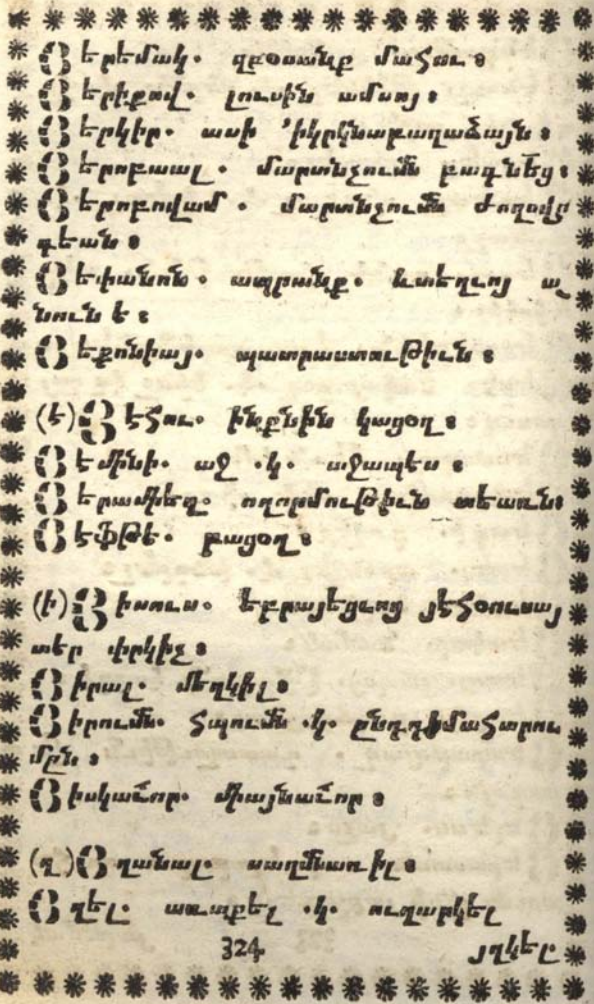 Յերեմակ. զբօսանք մահու։
Յերիքով. լուսին ամսոյ։
Յերկիր. ասի ՚իկրկնաբաղաձայն։
Յերոբաալ. մարտնչումն բագնեց։
Յերոբովամ. մարտնչումն ժողովր
դեան։
Յեփանոն. ապրանք. և տեղւոյ ա
նուն է։
Յեքոնիայ. պատրաստութիւն։
(է) Յէհու. ինքնին կացօղ։
Յեմինի. աջ .կ. աջապէս։
Յերամիէղ. ողորմութիւն տեառն։
Յէփթէ. բացօղ։
(ի) Յիսուս. եբրայեցւոց յէհօուսայ
տեր փրկիչ։
Յիրալ. մեղկիլ։
Յիրումն. հպումն .կ. ընդդիմահարու
մըն։
Յիսկաւոր. միայնաւոր։
(ղ) Յղանալ. սաղմնառիլ։
Յղել. առաքել .կ. ուղարկել
324 յղկել